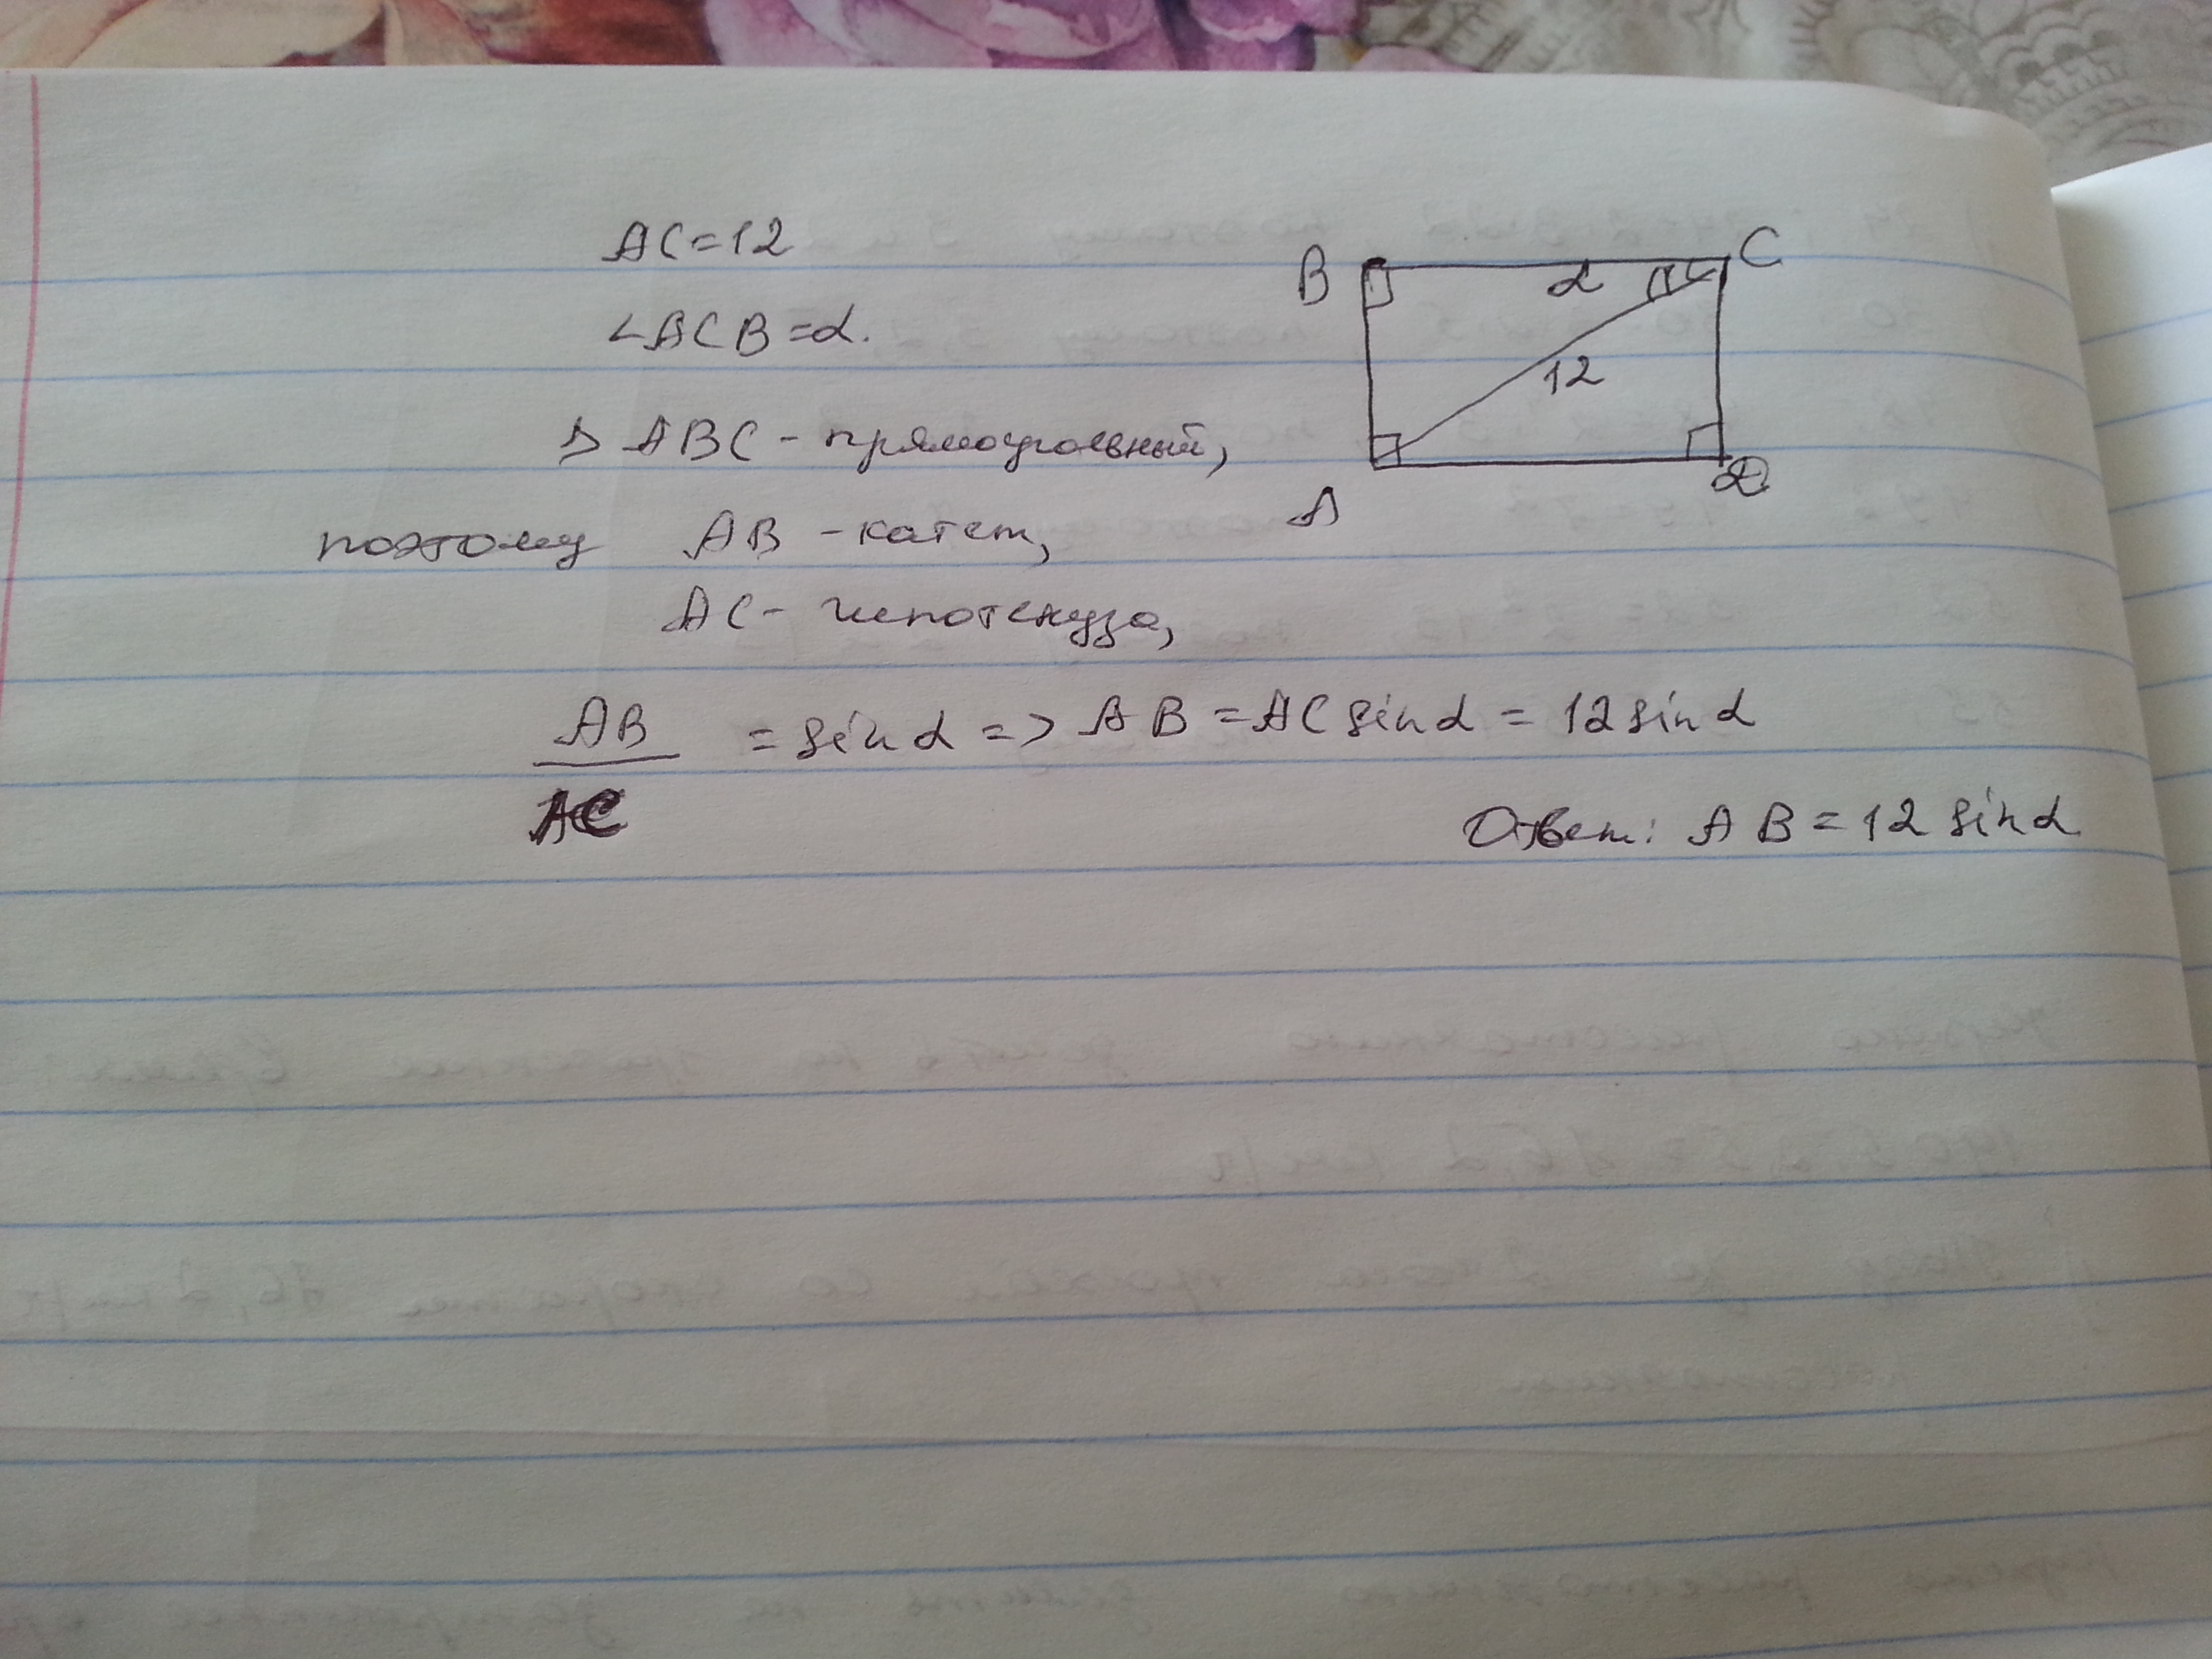 AC=12
∠ACB=α.
△ABC - прямоугольный,
поэтому AB - катет,
AC - гипотенуза,
AB
AC
= sinα => AB = AC sinα = 12 sinα
Ответ: AB = 12 sinα
B
α
C
12
A
D